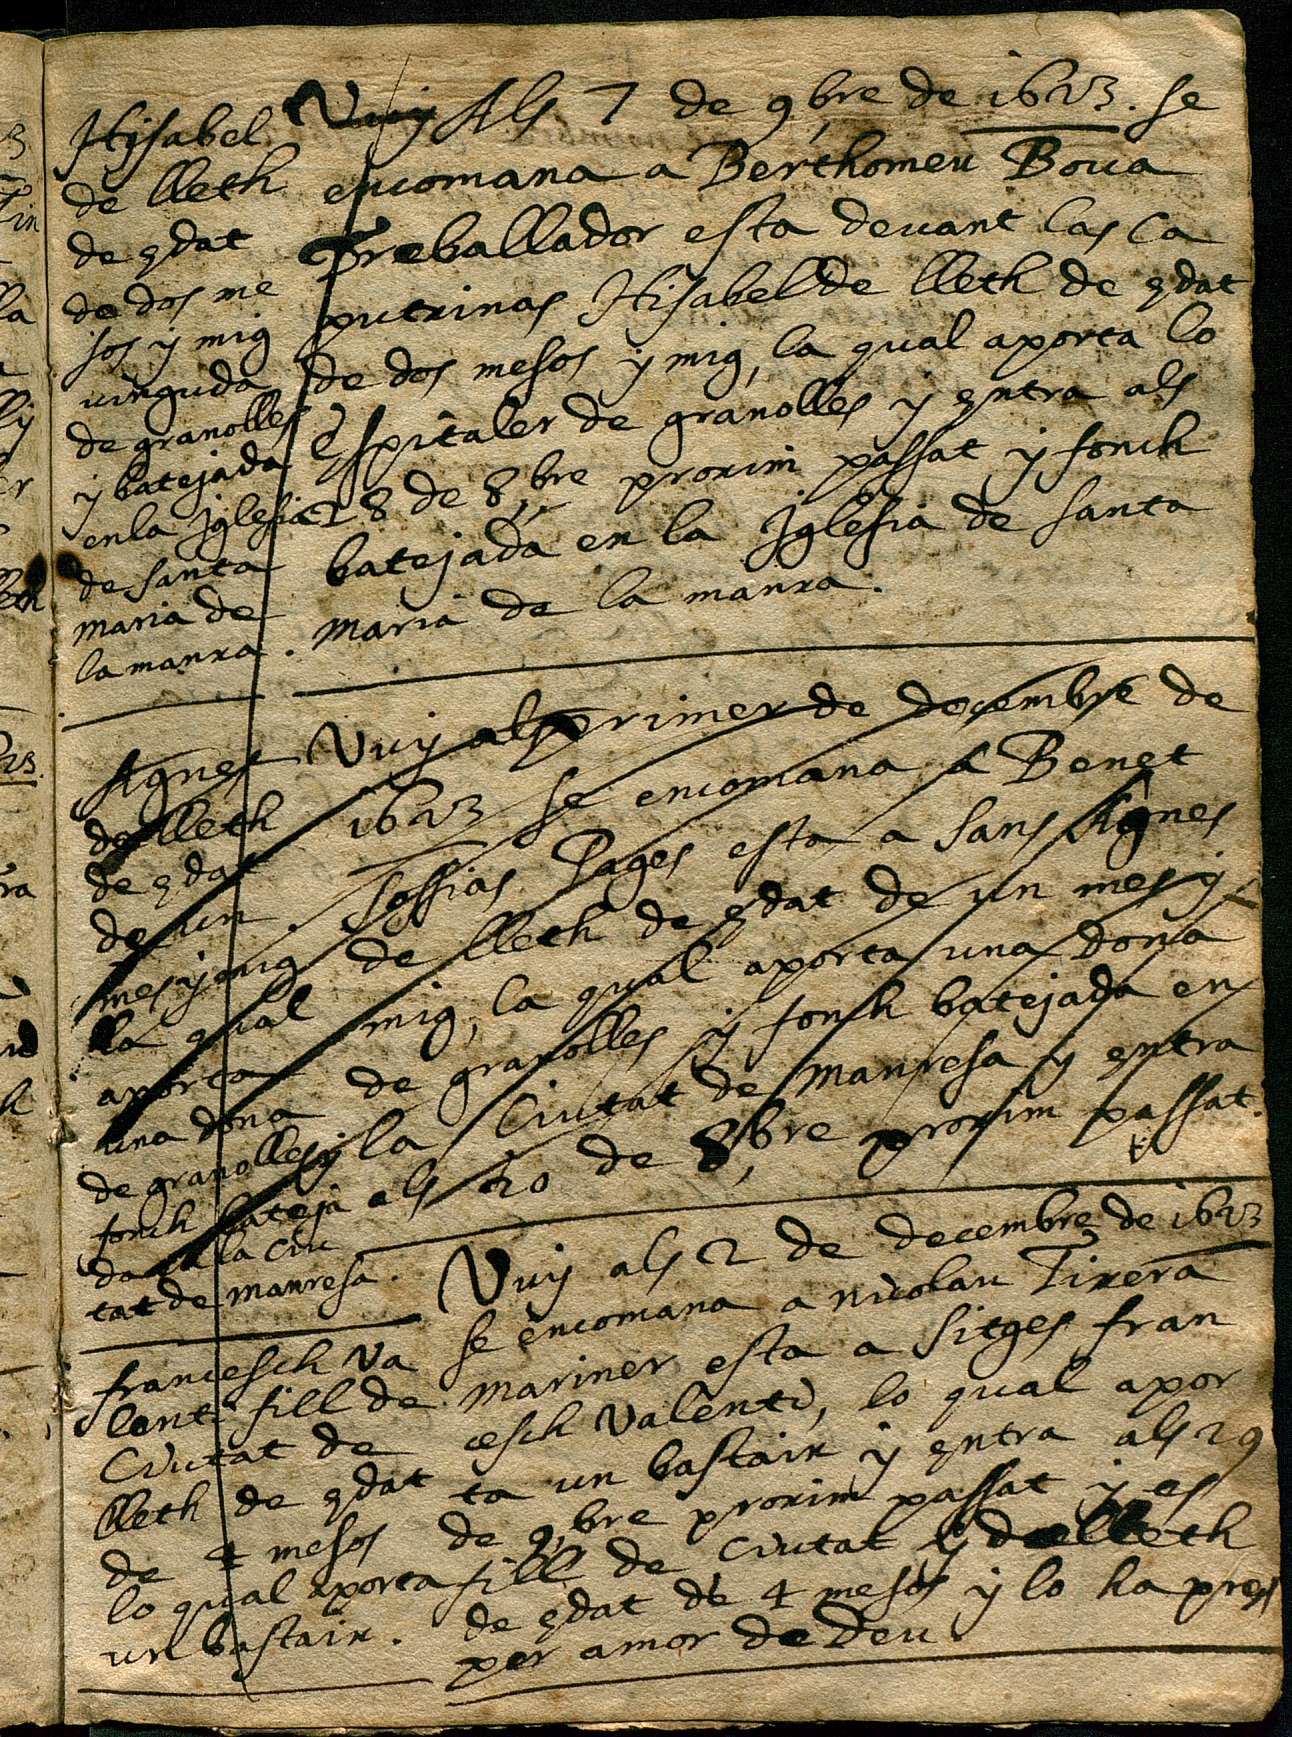 Hisabel
de lleth
de edat
de dos me
sos y mig
vinguda
de granolles
y batejada
en la Iglesia
de santa
maria de
la manra.
Vuy Als 7 de 9bre de 1623. se
encomana a Berthomeu Bova
Treballador esta devant las ca
putxinas Hisabel de lleth de edat
de dos mesos y mig, la qual aporta lo
Espitaler de granolles y entra als
28 de 8bre proxim passat y fonch
batejada en la Iglesia de santa
maria de la manra.
Agnes
de lleth
de edat
de un
mes y mig
la qual
aporta
una dona
de granolles y
fonch bateja
da en la Ciu
tat de manresa.
Vuy als primer de decembre de
1623 se encomana a Benet
Sossias Pages esta a Sans Agnes
de lleth de edat de un mes y
mig, la qual aporta una dona
de granolles y fonch batejada en
la Ciutat de manresa y entra
als 20 de 8bre proxim passat.
francesch Va
lenti fill de
Ciutat de
lleth de edat
de 4 mesos
lo qual aporta
un bastaix.
Vuy als 2 de decembre de 1623
se encomana a nicolau Tixera
mariner esta a Sitges fran
cesch Valenti, lo qual apor
ta un bastaix y entra als 29
de 9bre proxim passat y es
fill de Ciutat y de lleth
de edat de 4 mesos y lo ha pres
per amor de Deu.